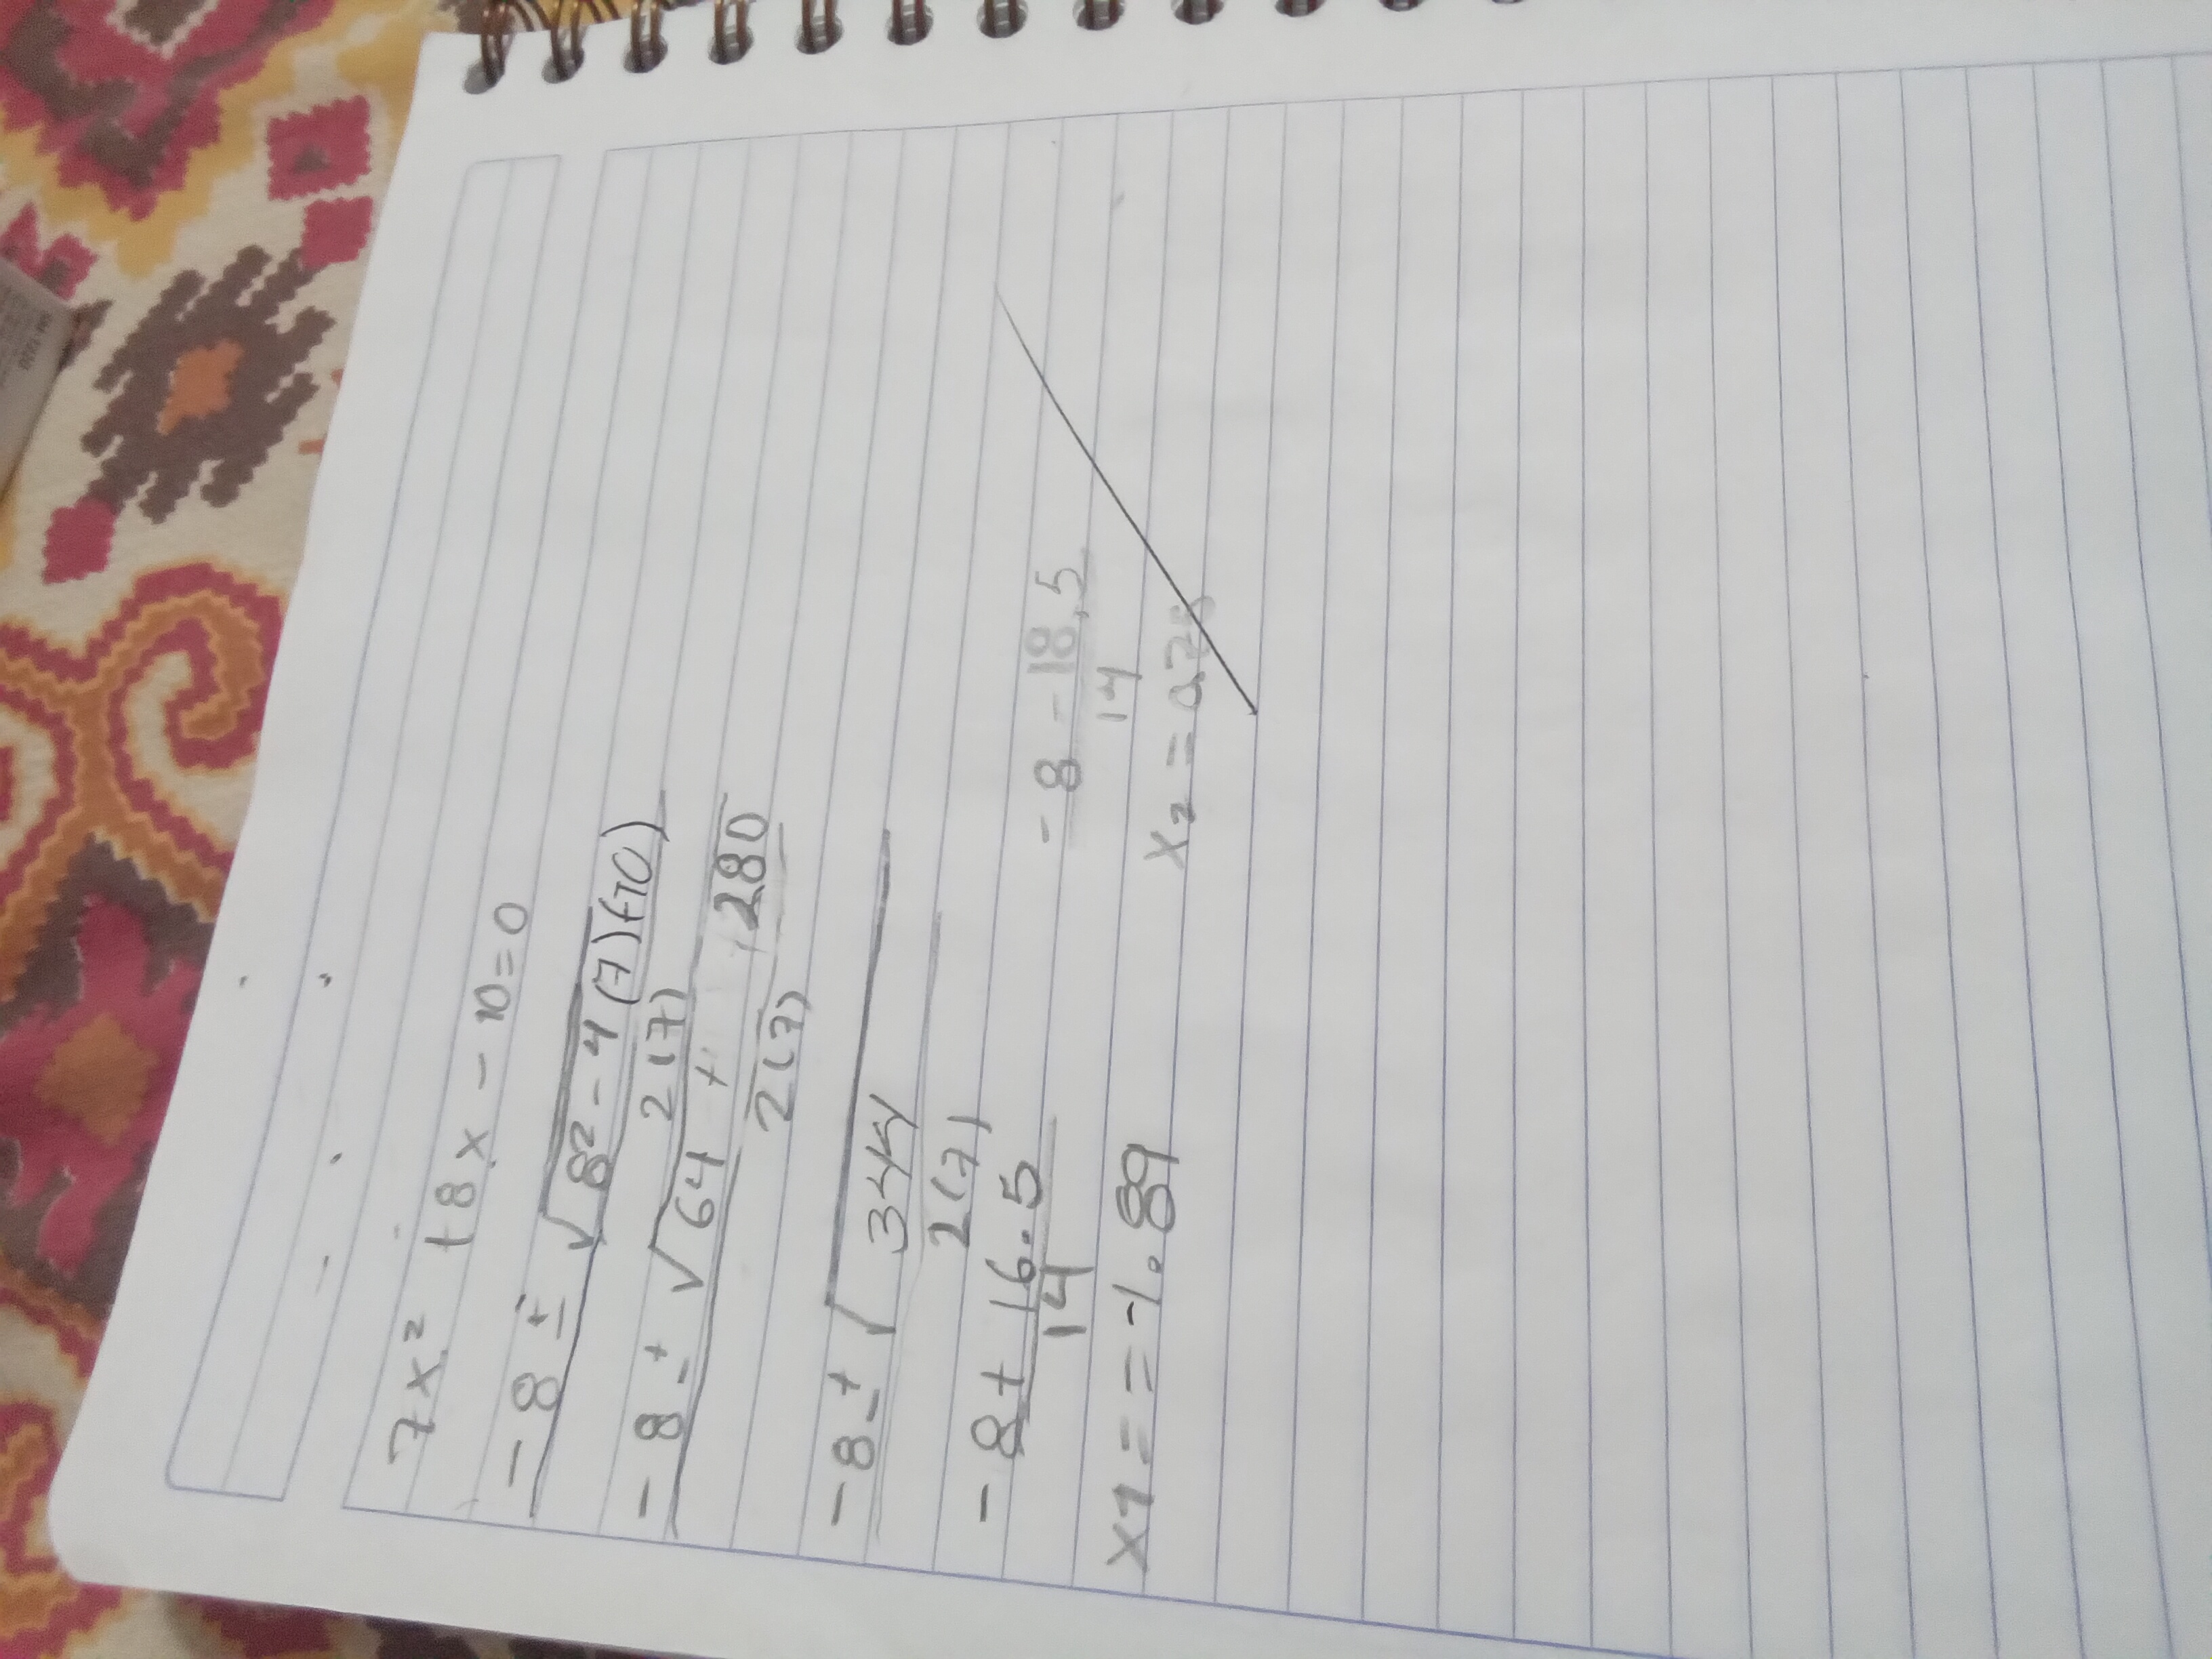 7x² +8x - 10=0
-8 ± √8² - 4(7)(-10)
2(7)
-8 ± √64 + 280
2(7)
-8 ± √344
2(7)
-8 + 16.5
14
-8 - 18,5
14
x1 = -1.89
x₂ =